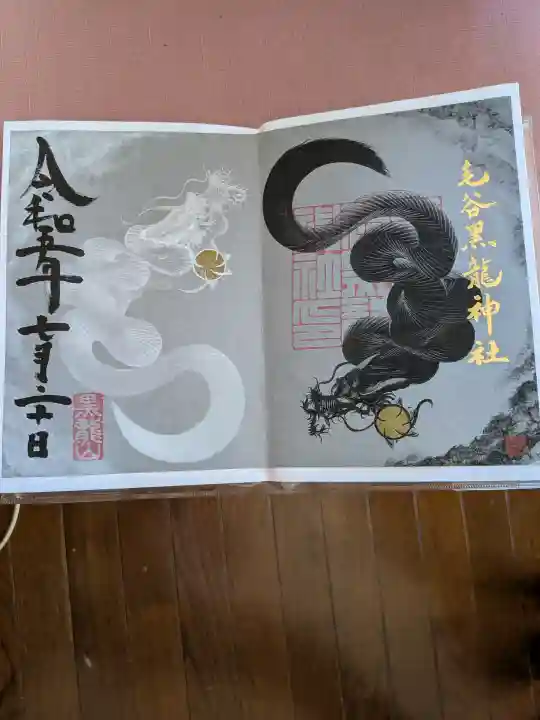 毛谷黒龍神社
令和五年七月二十日
黒龍山